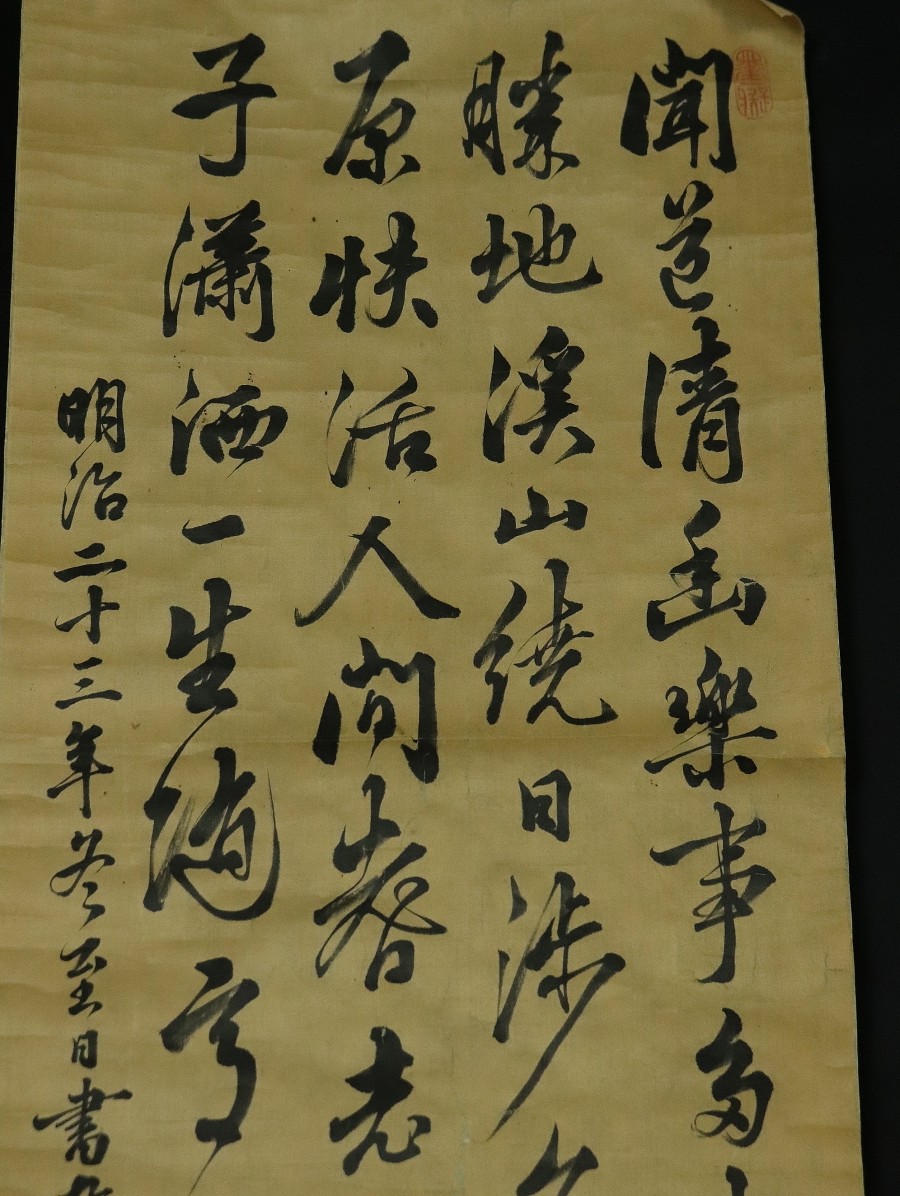 聞道清幽樂事多
勝地溪山繞日涉
原快活人間耆老
子瀟洒一生随
明治二十三年冬至日書